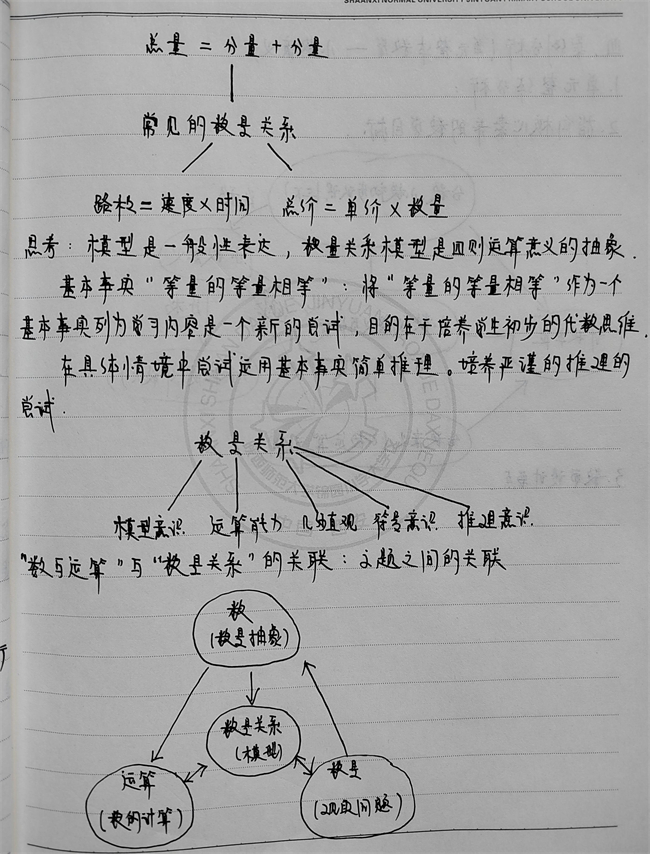 总量 = 分量 + 分量
常见的数量关系
路程 = 速度 × 时间 总价 = 单价 × 数量
思考：模型是一般性表达，数量关系模型是四则运算意义的抽象．
基本事实"等量的等量相等"：将"等量的等量相等"作为一个
基本事实列为学习内容是一个新的尝试，目的在于培养学生初步的代数思维．
在具体情境中尝试运用基本事实简单推理。培养严谨的推理的
尝试．
数量关系
模型意识 运算能力 几何直观 符号意识 推理意识
"数与运算"与"数量关系"的关联：主题之间的关联
数
(数量抽象)
数量关系
(模型)
运算
(数的计算)
数量
(现实问题)